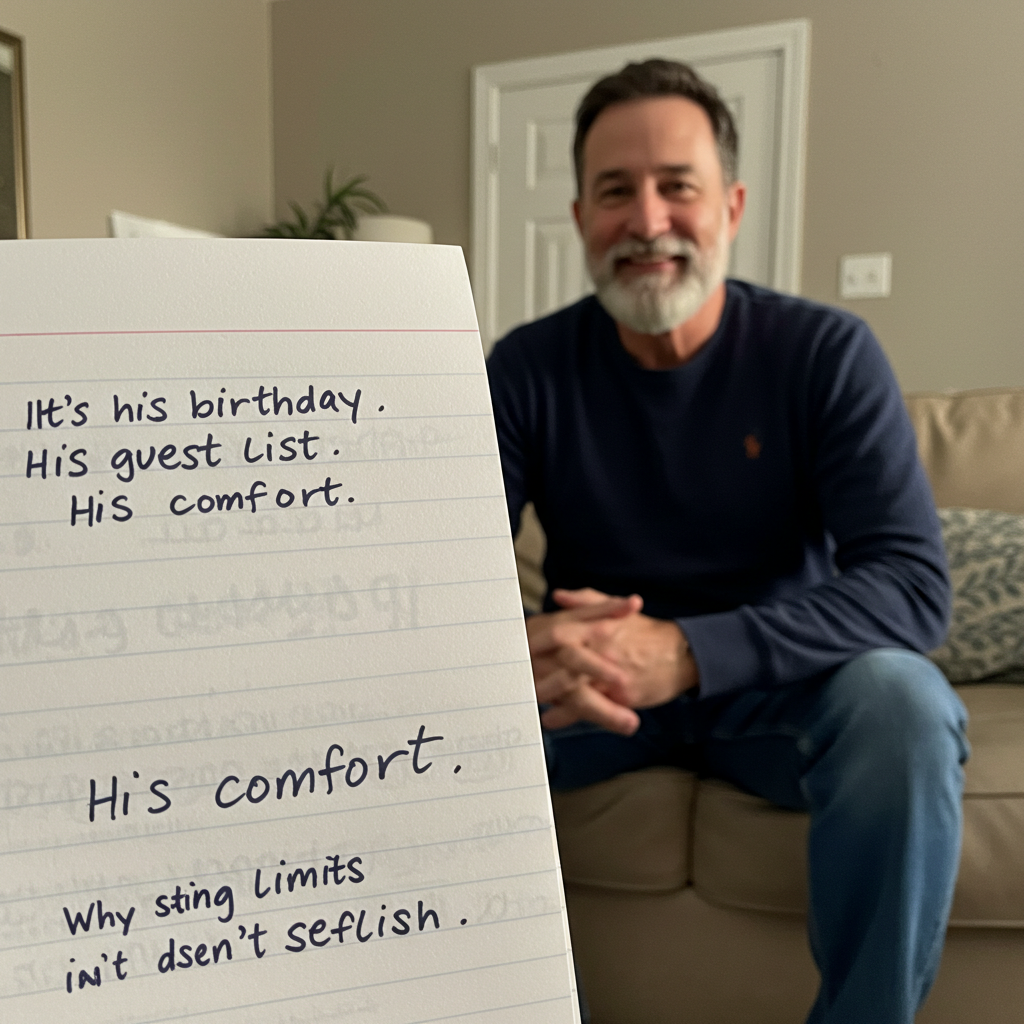 IIt's his birthday.
His guest List.
His comfort.
His comfort.
Why sting Limits
isn't dsen't seflish.